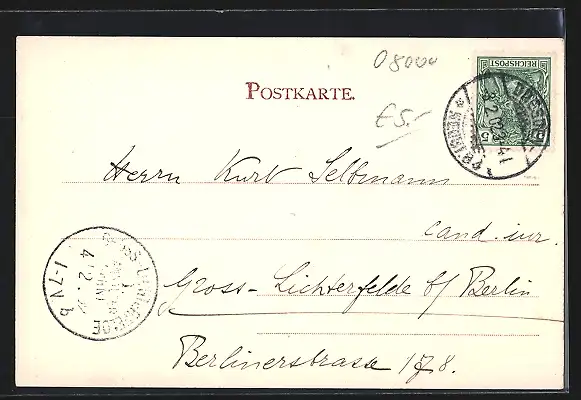 08000
POSTKARTE.
E5.-
REICHSPOST
5
DRESDEN
Herrn Kurt Seltmann
cand. iur.
Gross-Lichterfelde b/ Berlin
Berlinerstrasse 178.
GROSS-LICHTERFELDE
4 2.
1-7V